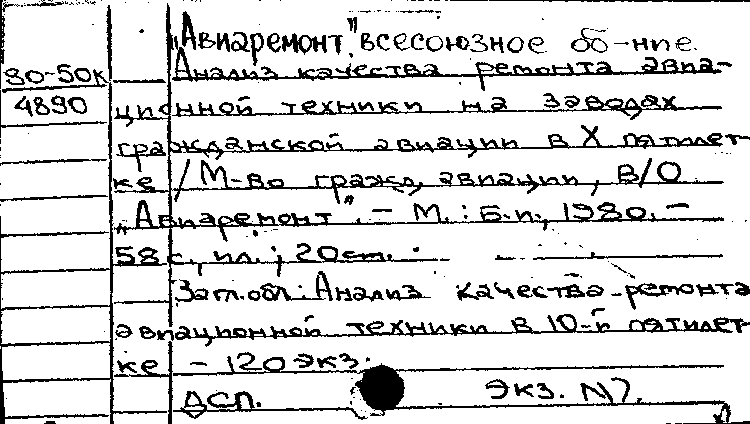 „Авиаремонт", всесоюзное об-ние.
80-50к Анализ качества ремонта авиа-
4890 ционной техники на заводах
гражданской авиации в X пятилет-
ке / М-во гражд. авиации, В/О
„Авиаремонт". – М.: Б.и., 1980. –
58 с., ил.; 20 см.
Загл. обл.: Анализ качества ремонта
авиационной техники в 10-й пятилет-
ке – 120 экз.
ДСП. Экз. N7.